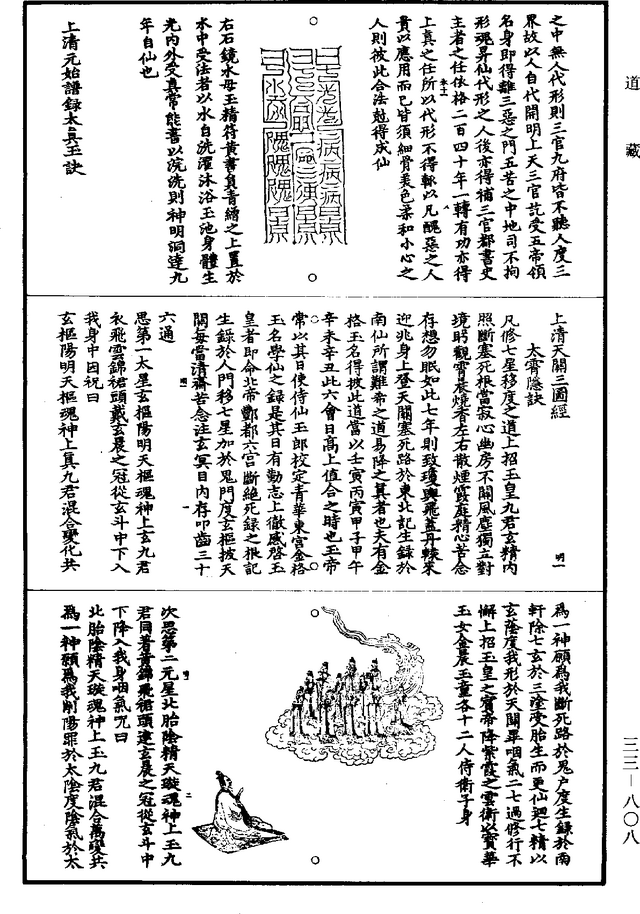 道藏
之中無人代形則三官九府皆不聽人度三
界故以人自代開明上天三官託受五帝領
名身即得離三惡之門五苦之中地司不拘
形魂昇仙代形之人後亦得補三官都書史
主者之任依格二百四十年一轉有功亦得
上真之任所以代形不得輒以凡醜惡之人
貴以應用而已皆須細骨美色柔和小心之
人則彼此合法尅得成仙
右石鏡水母玉精符黃書負青繒之上置於
水中受法者以水自洗濯沐浴玉池身體生
光內外受真常能書以浣洗則神明洞達九
年自仙也
上清元始譜錄太真玉訣
上清天關三圖經
太霄隱訣
凡修七星移度之道上招玉皇九君玄精內
照斷塞死根當寂心幽房不關風塵獨立對
境眄觀雲晨燒香左右散煙霞庭精心苦念
存想勿眠如此七年則致瓊輿飛蓋丹軿來
迎兆身上登天關塞死路於東北記生錄於
南仙所謂難希之道易降之真者也夫有金
格玉名得披此道當以壬寅丙寅甲子甲午
辛未辛丑此六會日高上值合之時也玉帝
常以其日使侍仙玉郎校定青華東宮金格
玉名學仙之錄是其日有勤志上徹感啓玉
皇者即命北帝酆都六宮斷絶死錄之根記
生錄於人門移七星加於鬼門度玄樞披天
關每當清齋苦念注玄冥目內存叩齒三十
六通
思第一太星玄樞陽明天樞魂神上玄九君
衣飛雲錦裙頭戴玄晨之冠從玄斗中下入
我身中因祝曰
玄樞陽明天樞魂神上真九君混合變化共
爲一神願爲我斷死路於鬼戶度生錄於南
軒除七玄於三塗受胎生而更仙迴七精以
玄蔭度我形於天關畢咽氣二七過修行不
懈上招玉皇之賓帝降紫霞之雲衛以寶華
玉女金晨玉童各十二人侍衛子身
次思第二元星北胎陰精天璇魂神上玉九
君同著黃錦飛裙頭建玄晨之冠從玄斗中
下降入我身咽氣咒曰
北胎陰精天璇魂神上玉九君混合萬變共
爲一神願爲我削陽罪於太陰度陰氣於太
三三—八〇八